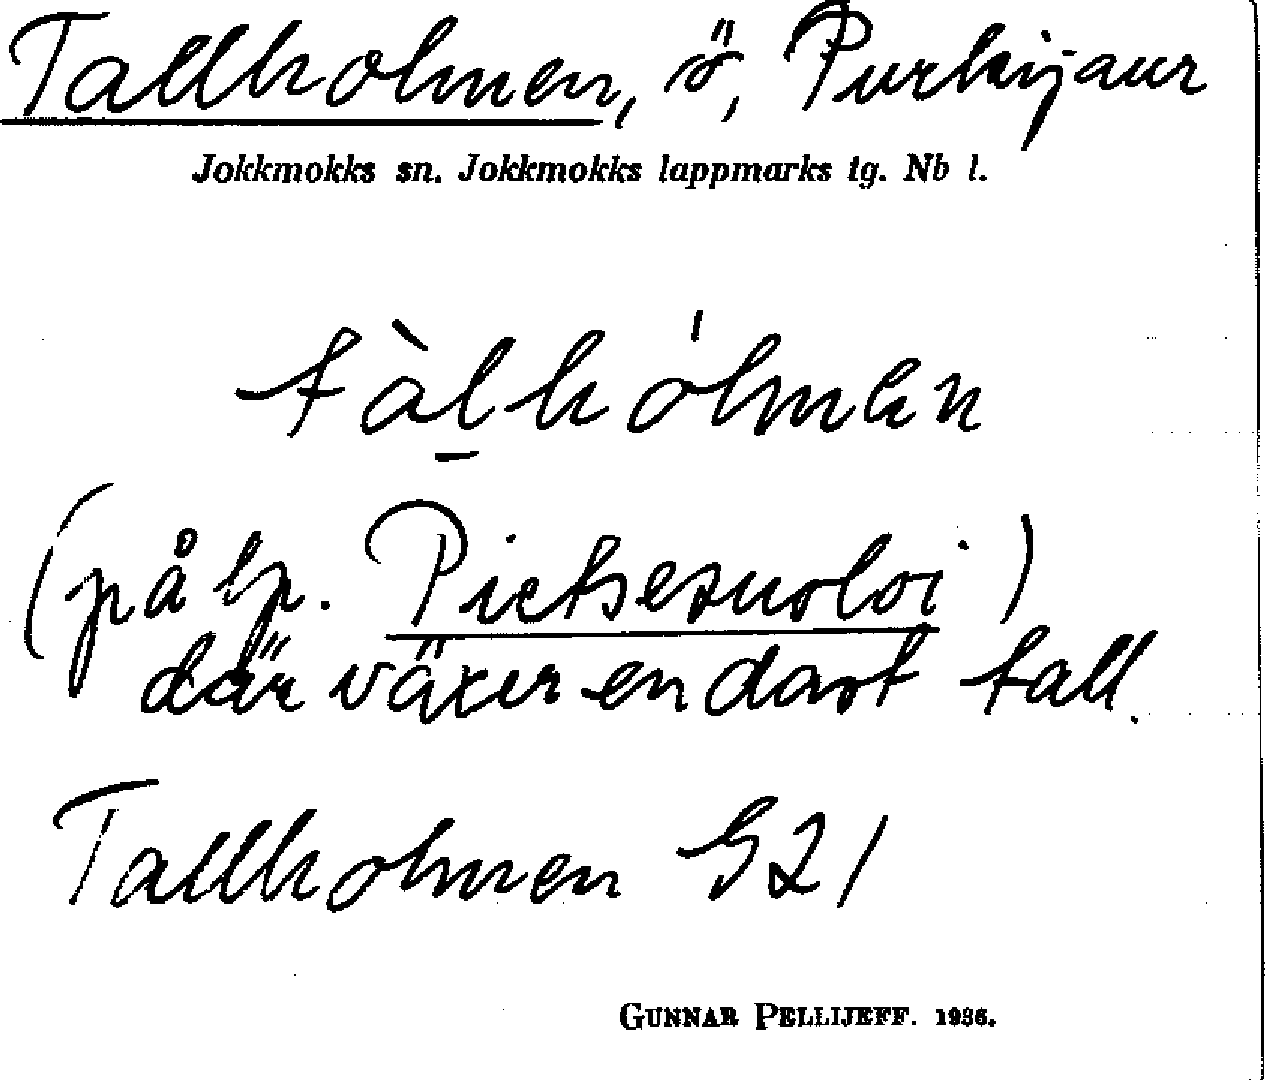 Tallholmen, ö, Purkijaur
Jokkmokks sn. Jokkmokks lappmarks tg. Nb l.
tàl̠hólmen
(på lp. Pietsesuoloi)
där växer endast tall.
Tallholmen G21
GUNNAR PELLIJEFF. 1936.